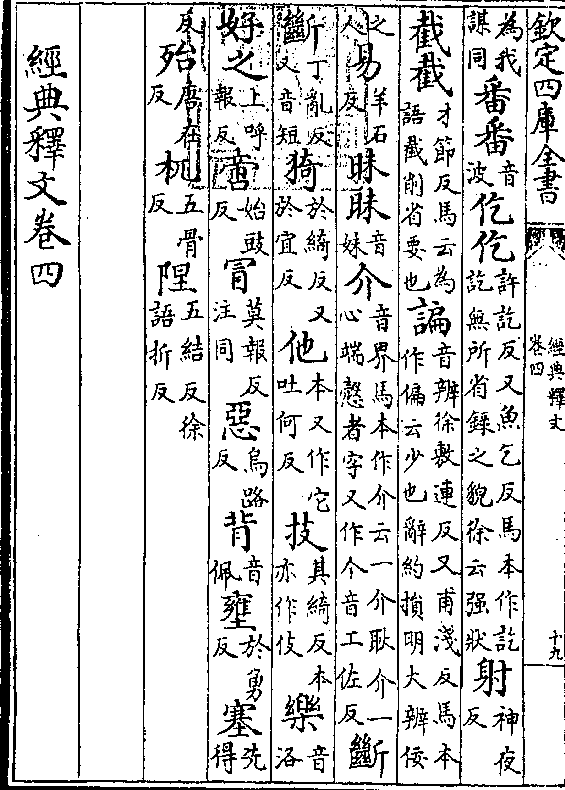 欽定四庫全書
經典釋文
卷四
十九
為我謀同番番音波仡仡許訖反又魚乞反馬本作訖訖無所省錄之貌徐云强狀射神夜反
截截才節反馬云為語截削省要也諞音辨徐敷連反又甫淺反馬本作偏云少也辭約損明大辨佞
之人易羊石反昧昧音妹介音界馬本作介云一介耿介一心端慤者字又作个音工佐反斷
斷丁亂反又音短猗於綺反又於宜反他本又作它吐何反技其綺反本亦作伎樂音洛
好之上呼報反啻始豉反冒莫報反注同惡烏路反背音佩壅於勇反塞先得
反殆唐在反杌五骨反隉五結反徐語折反
經典釋文卷四